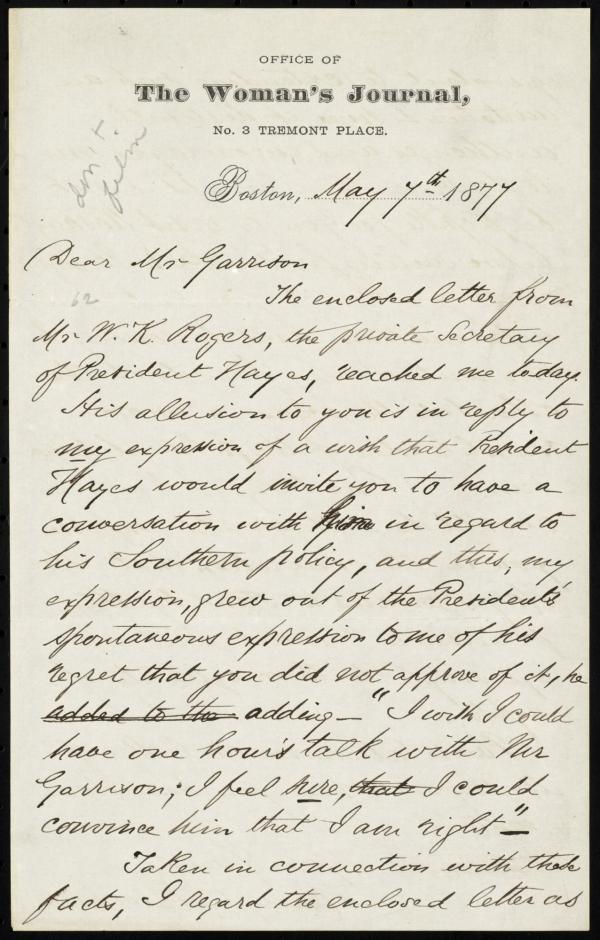 OFFICE OF
The Woman's Journal,
No. 3 TREMONT PLACE.
don't
film
Boston, May 7th 1877
Dear Mr Garrison
62
The enclosed letter from
Mr W. K. Rogers, the private Secretary
of President Hayes, reached me today.
His allusion to you is in reply to
my expression of a wish that President
Hayes would invite you to have a
conversation with him in regard to
his Southern policy, and this, my
expression, grew out of the President's
spontaneous expression to me of his
regret that you did not approve of it, he
added to the adding — "I wish I could
have one hour's talk with Mr
Garrison; I feel sure, that I could
convince him that I am right" —
Taken in connection with these
facts, I regard the enclosed letter as